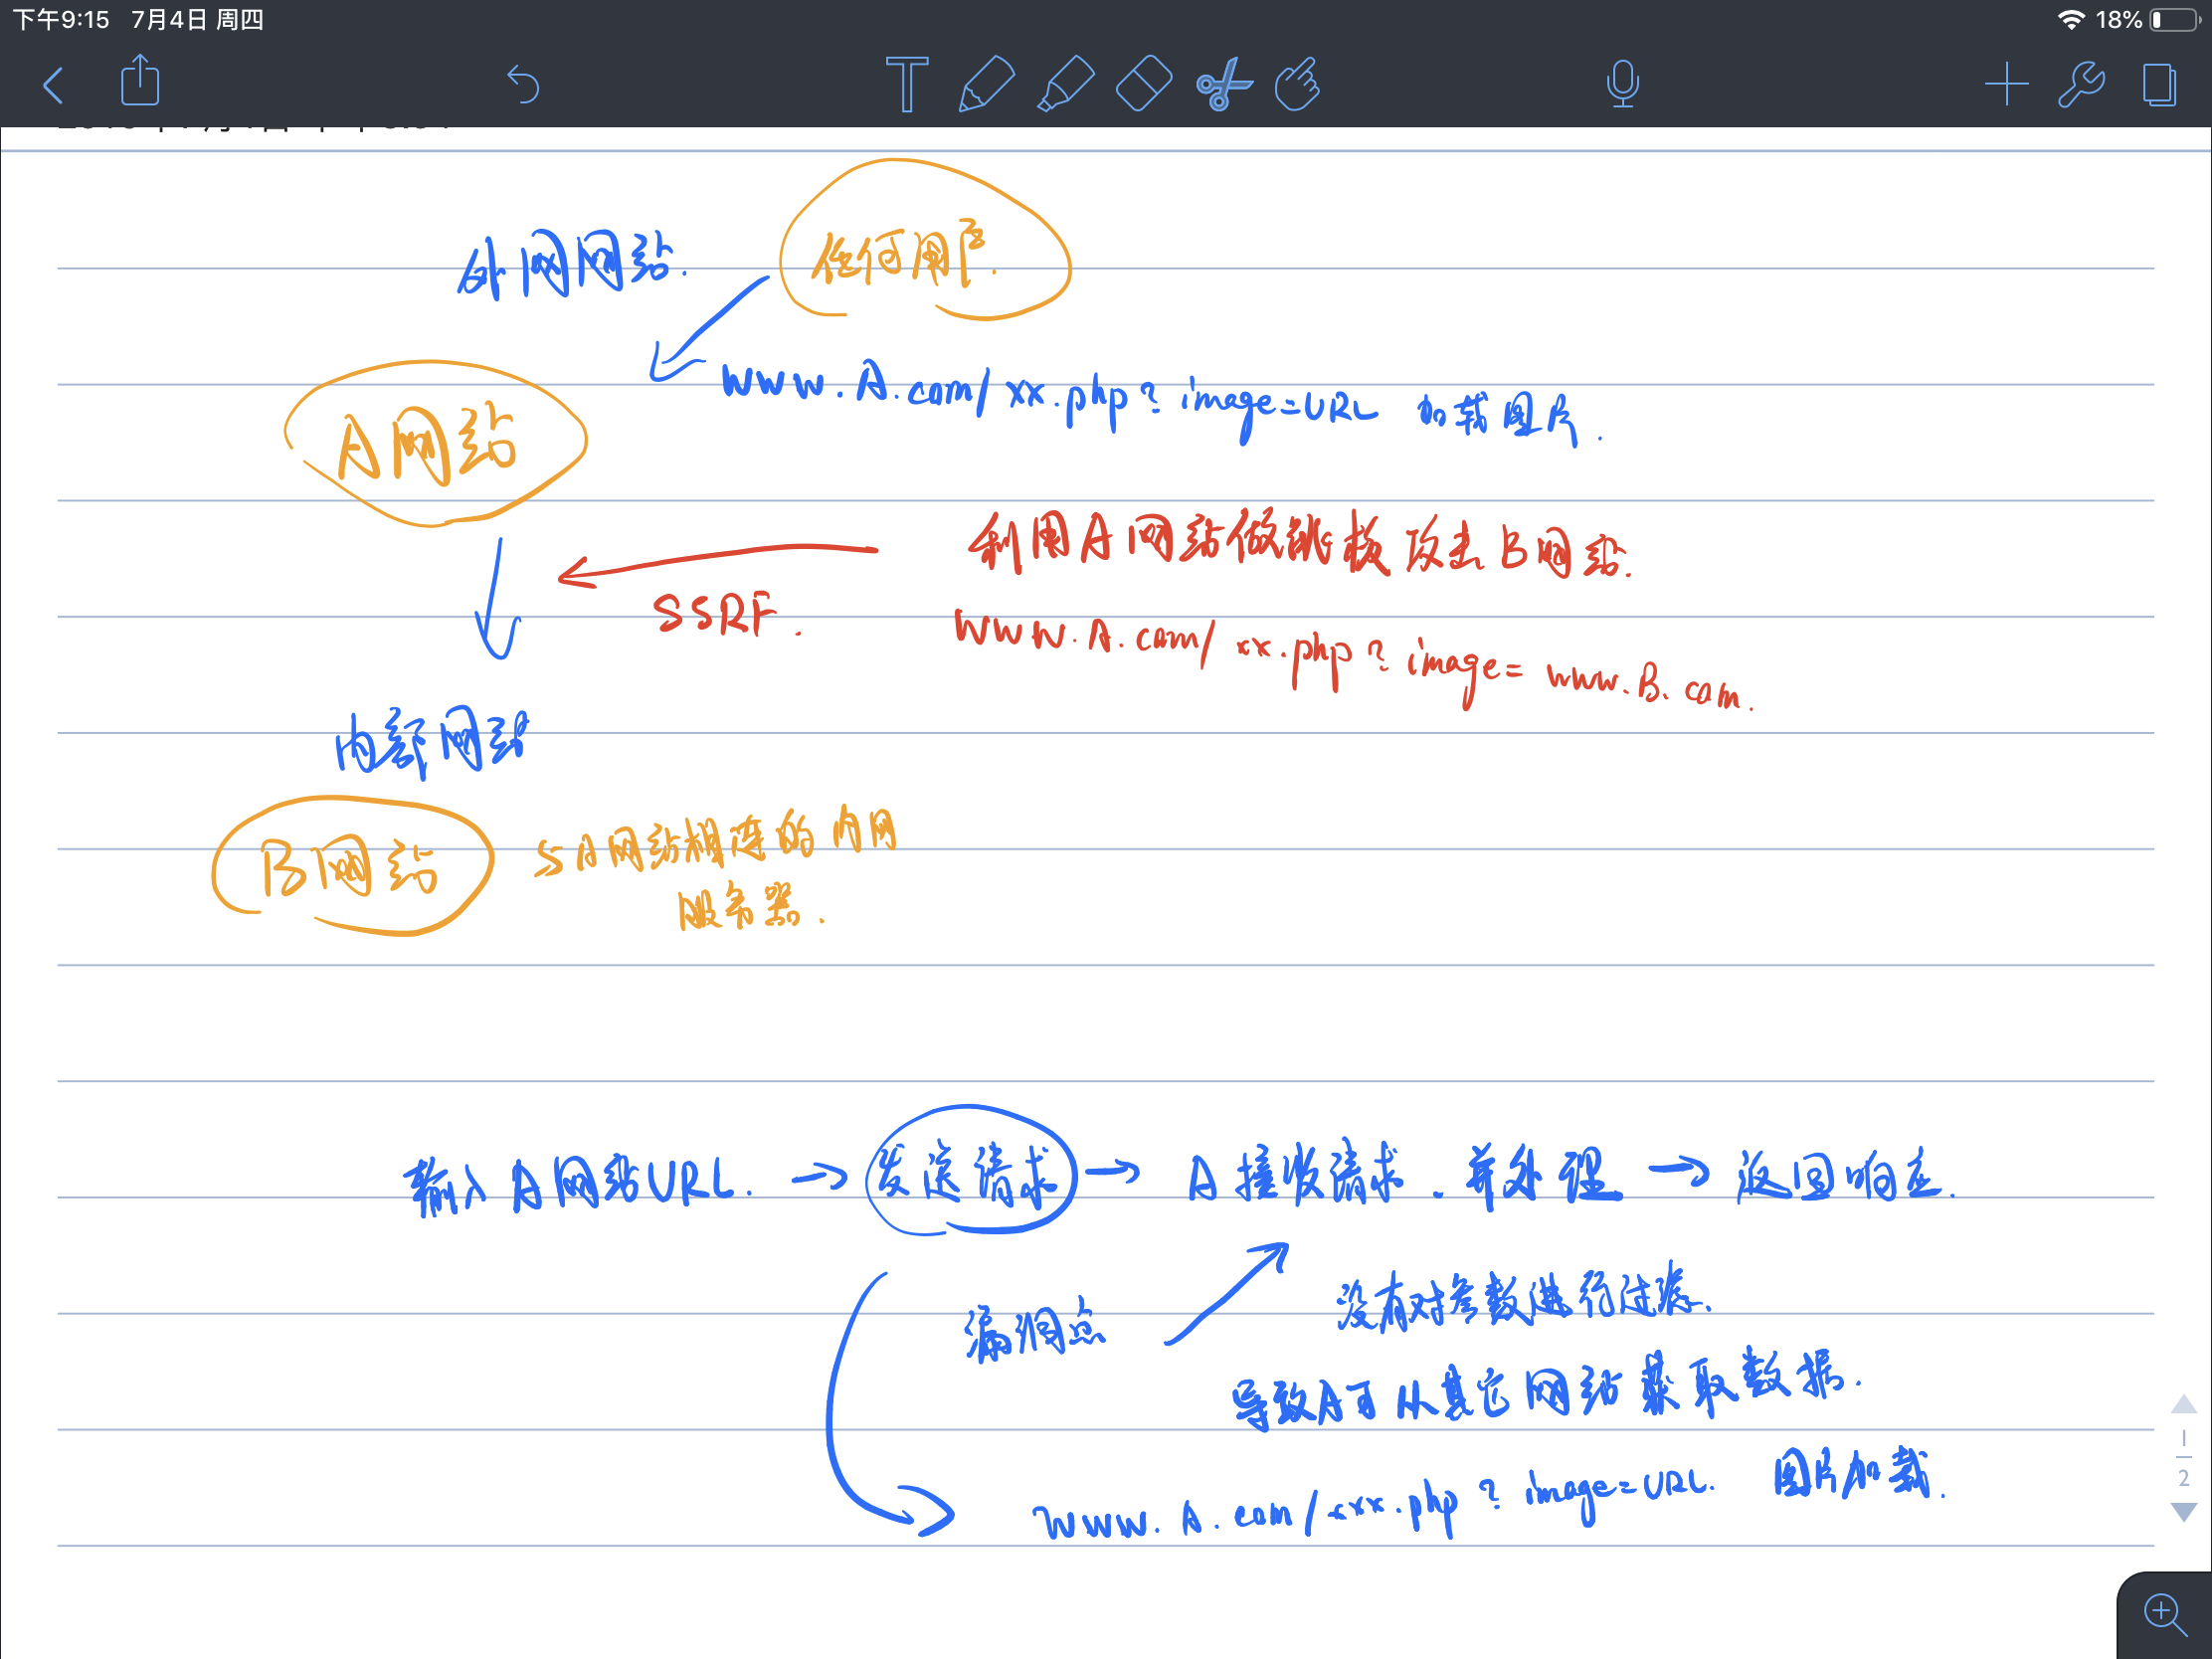 下午9:15 7月4日 周四
18%
外网网站.
任何用户.
www.A.com/xx.php?image=URL 加载图片.
A网站
利用A网站做跳板攻击B网站.
SSRF.
www.A.com/xx.php?image=www.B.com.
内部网站
B网站
与A网站相连的内网
服务器.
输入A网站URL. → 发送请求 → A接收请求.并处理 → 返回响应.
漏洞点
没有对参数进行过滤、
导致A可从其它网站获取数据.
www.A.com/xxx.php?image=URL. 图片加载.
1
2